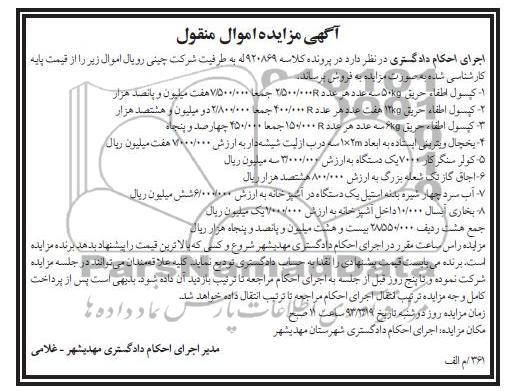 آگهی مزایده اموال منقول
اجرای احکام دادگستری در نظر دارد در پرونده کلاسه ۹۲۰۸۶۹ له به طرفیت شرکت چینی رویال اموال زیر را از قیمت پایه
کارشناسی شده به صورت مزایده به فروش برساند.
۱- کپسول اطفاء حریق ۵۰kg سه عدد هر عدد ۲/۵۰۰/۰۰۰R جمعا ۷/۵۰۰/۰۰۰ هفت میلیون و پانصد هزار
۲- کپسول اطفاء حریق ۱۲kg هفت عدد هر عدد ۴۰۰/۰۰۰R جمعا ۲/۸۰۰/۰۰۰ دو میلیون و هشتصد هزار
۳- کپسول اطفاء حریق ۶kg سه عدد هر عدد ۱۵۰/۰۰۰R جمعا ۴۵۰/۰۰۰ چهارصد و پنجاه
۴- یخچال ویترینی ایستاده به ابعاد ۱×۲m سه درب ازلیت شیشه‌دار به ارزش ۷/۰۰۰/۰۰۰ هفت میلیون ریال
۵- کولر سنگر کار ۷۰۰۰ یک دستگاه به ارزش ۳/۰۰۰/۰۰۰ سه میلیون ریال
۶- اجاق گاز تک شعله بزرگ به ارزش ۸۰۰/۰۰۰ هشتصد هزار ریال
۷- آب سرد چهار شیره بدنه استیل یک دستگاه در آشپزخانه به ارزش ۶/۰۰۰/۰۰۰ شش میلیون ریال
۸- بخاری آبسال ۱۰/۰۰۰ داخل آشپزخانه به ارزش ۱/۰۰۰/۰۰۰ یک میلیون ریال
جمع هشت ردیف ۲۸/۵۵۰/۰۰۰ بیست و هشت میلیون و پانصد و پنجاه هزار ریال
مزایده راس ساعت مقرر در اجرای احکام دادگستری مهدیشهر شروع و کسی که بالاترین قیمت را پیشنهاد بدهد برنده مزایده
است. برنده می‌بایست قیمت پیشنهادی را نقدا به حساب دادگستری تودیع نمایند کلیه علاقه‌مندان می‌توانند در جلسه مزایده
شرکت نموده و تا پنج روز قبل از جلسه به اجرای احکام مراجعه تا ترتیب بازدید آن داده شود. بدیهی است پس از پرداخت
کامل وجه مزایده ترتیب انتقال اجرای احکام مراجعه تا ترتیب انتقال داده خواهد شد.
زمان مزایده روز دوشنبه تاریخ ۹۳/۲/۱۹ ساعت ۱۱ صبح
مکان مزایده: اجرای احکام دادگستری شهرستان مهدیشهر
مدیر اجرای احکام دادگستری مهدیشهر - غلامی
۳۶۱/م الف